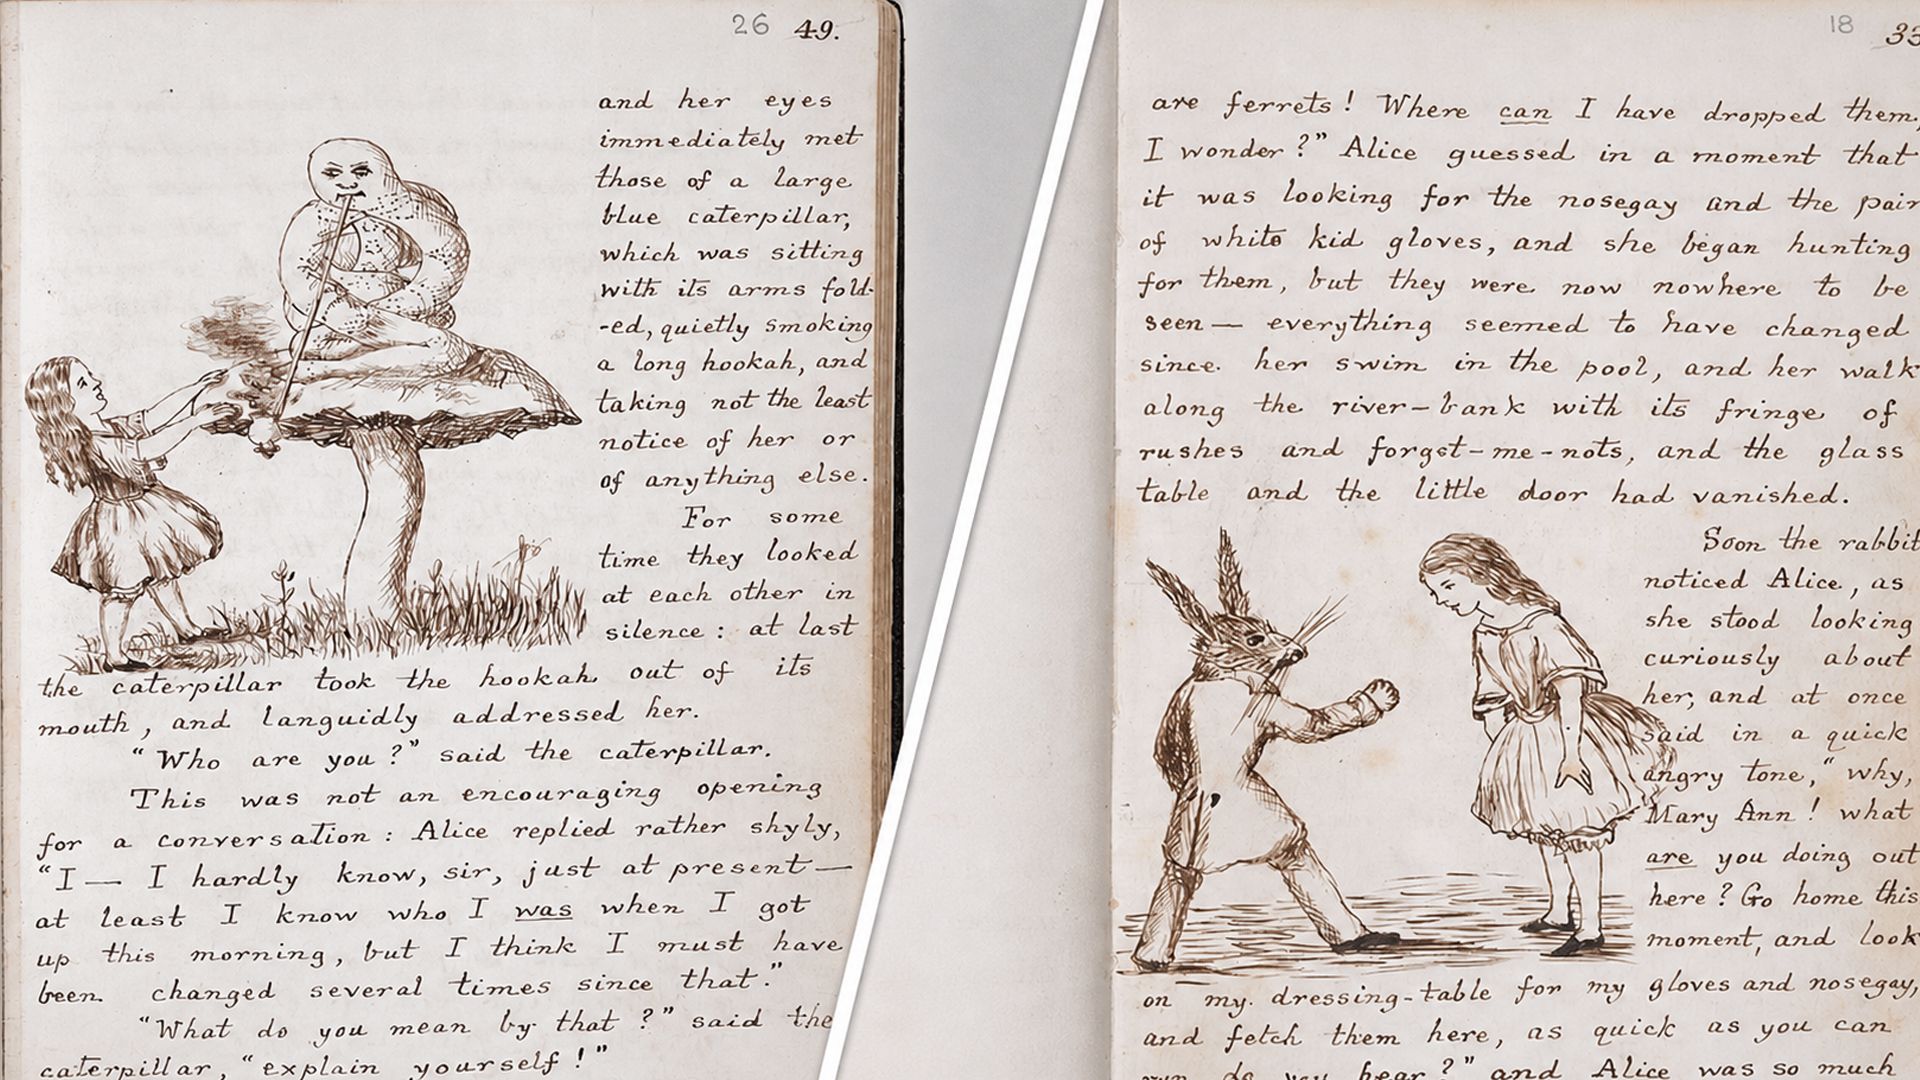 26 49.
and her eyes
immediately met
those of a large
blue caterpillar,
which was sitting
with its arms fold-
-ed, quietly smoking
a long hookah, and
taking not the least
notice of her or
of anything else.
For some
time they looked
at each other in
silence : at last
the caterpillar took the hookah out of its
mouth, and languidly addressed her.
"Who are you?" said the caterpillar.
This was not an encouraging opening
for a conversation : Alice replied rather shyly,
"I — I hardly know, sir, just at present —
at least I know who I was when I got
up this morning, but I think I must have
been changed several times since that."
"What do you mean by that?" said the
caterpillar, "explain yourself!"
18 33
are ferrets! Where can I have dropped them,
I wonder?" Alice guessed in a moment that
it was looking for the nosegay and the pair
of white kid gloves, and she began hunting
for them, but they were now nowhere to be
seen — everything seemed to have changed
since her swim in the pool, and her walk
along the river-bank with its fringe of
rushes and forget-me-nots, and the glass
table and the little door had vanished.
Soon the rabbit
noticed Alice, as
she stood looking
curiously about
her, and at once
said in a quick
angry tone, "why,
Mary Ann! what
are you doing out
here? Go home this
moment, and look
on my dressing-table for my gloves and nosegay,
and fetch them here, as quick as you can
run, do you hear?" and Alice was so much